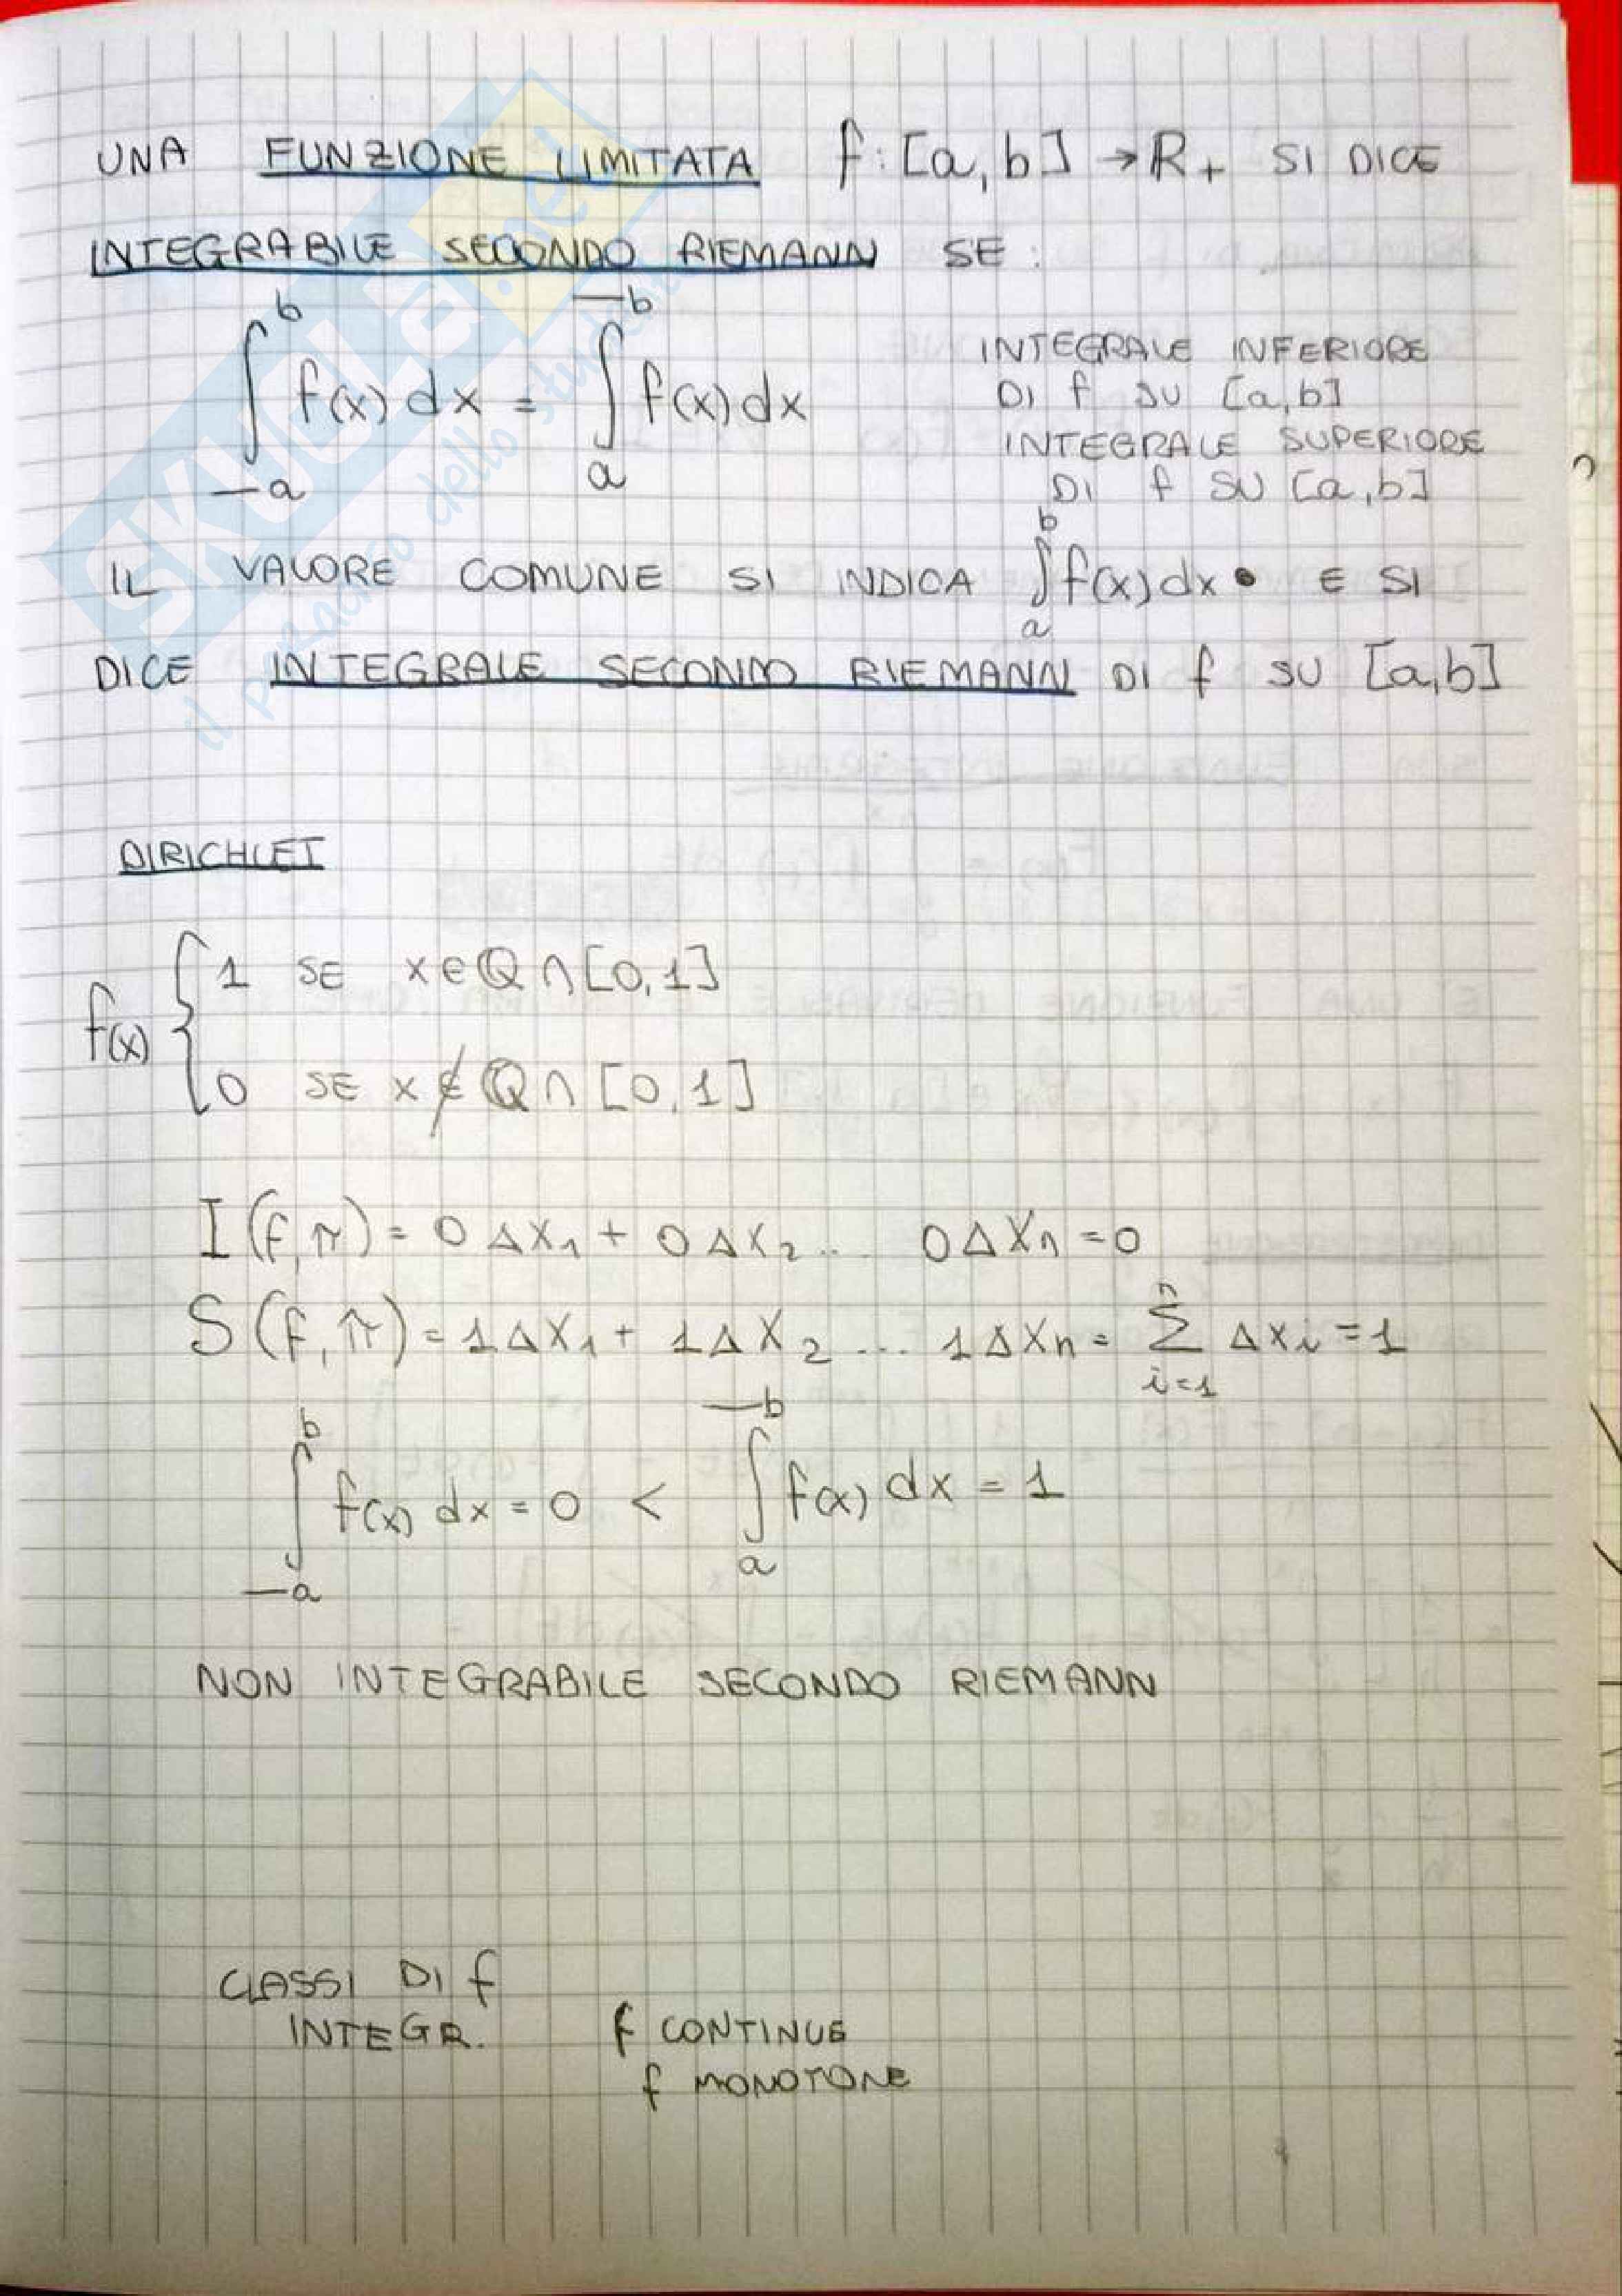 UNA FUNZIONE LIMITATA f:[a,b] →R+ SI DICE
INTEGRABILE SECONDO RIEMANN SE:
∫_{—a}^{b} f(x) dx = ∫_{a}^{—b} f(x) dx
INTEGRALE INFERIORE
DI f SU [a,b]
INTEGRALE SUPERIORE
DI f SU [a,b]
IL VALORE COMUNE SI INDICA ∫_{a}^{b} f(x) dx • E SI
DICE INTEGRALE SECONDO RIEMANN DI f SU [a,b]
DIRICHLET
f(x) {
1 SE x∈ℚ∩[0,1]
0 SE x∉ℚ∩[0,1]
I(f,π)= 0Δx₁+ 0Δx₂... 0Δxn=0
S(f,π)=1Δx₁+ 1Δx₂... 1Δxn= Σ_{i=1}^{n} Δxi=1
∫_{—a}^{b} f(x) dx=0 < ∫_{a}^{—b} f(x) dx = 1
NON INTEGRABILE SECONDO RIEMANN
CLASSI DI f
INTEGR.
f CONTINUE
f MONOTONE
SKUOLA.net
il paradiso dello studente